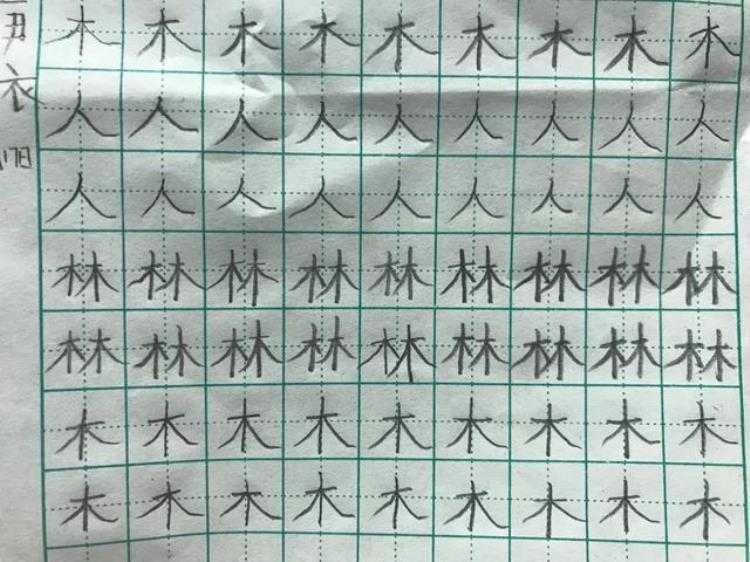 木木木木木木木木木
人人人人人人人人人
人人人人人人人人人
林林林林林林林林林
林林林林林林林林林
木木木木木木木木木
木木木木木木木木木
衣